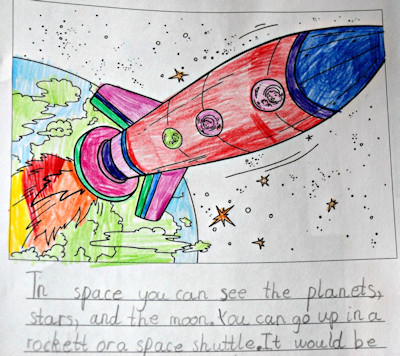 In space you can see the planets,
stars, and the moon. You can go up in a
rockett or a space shuttle. It would be